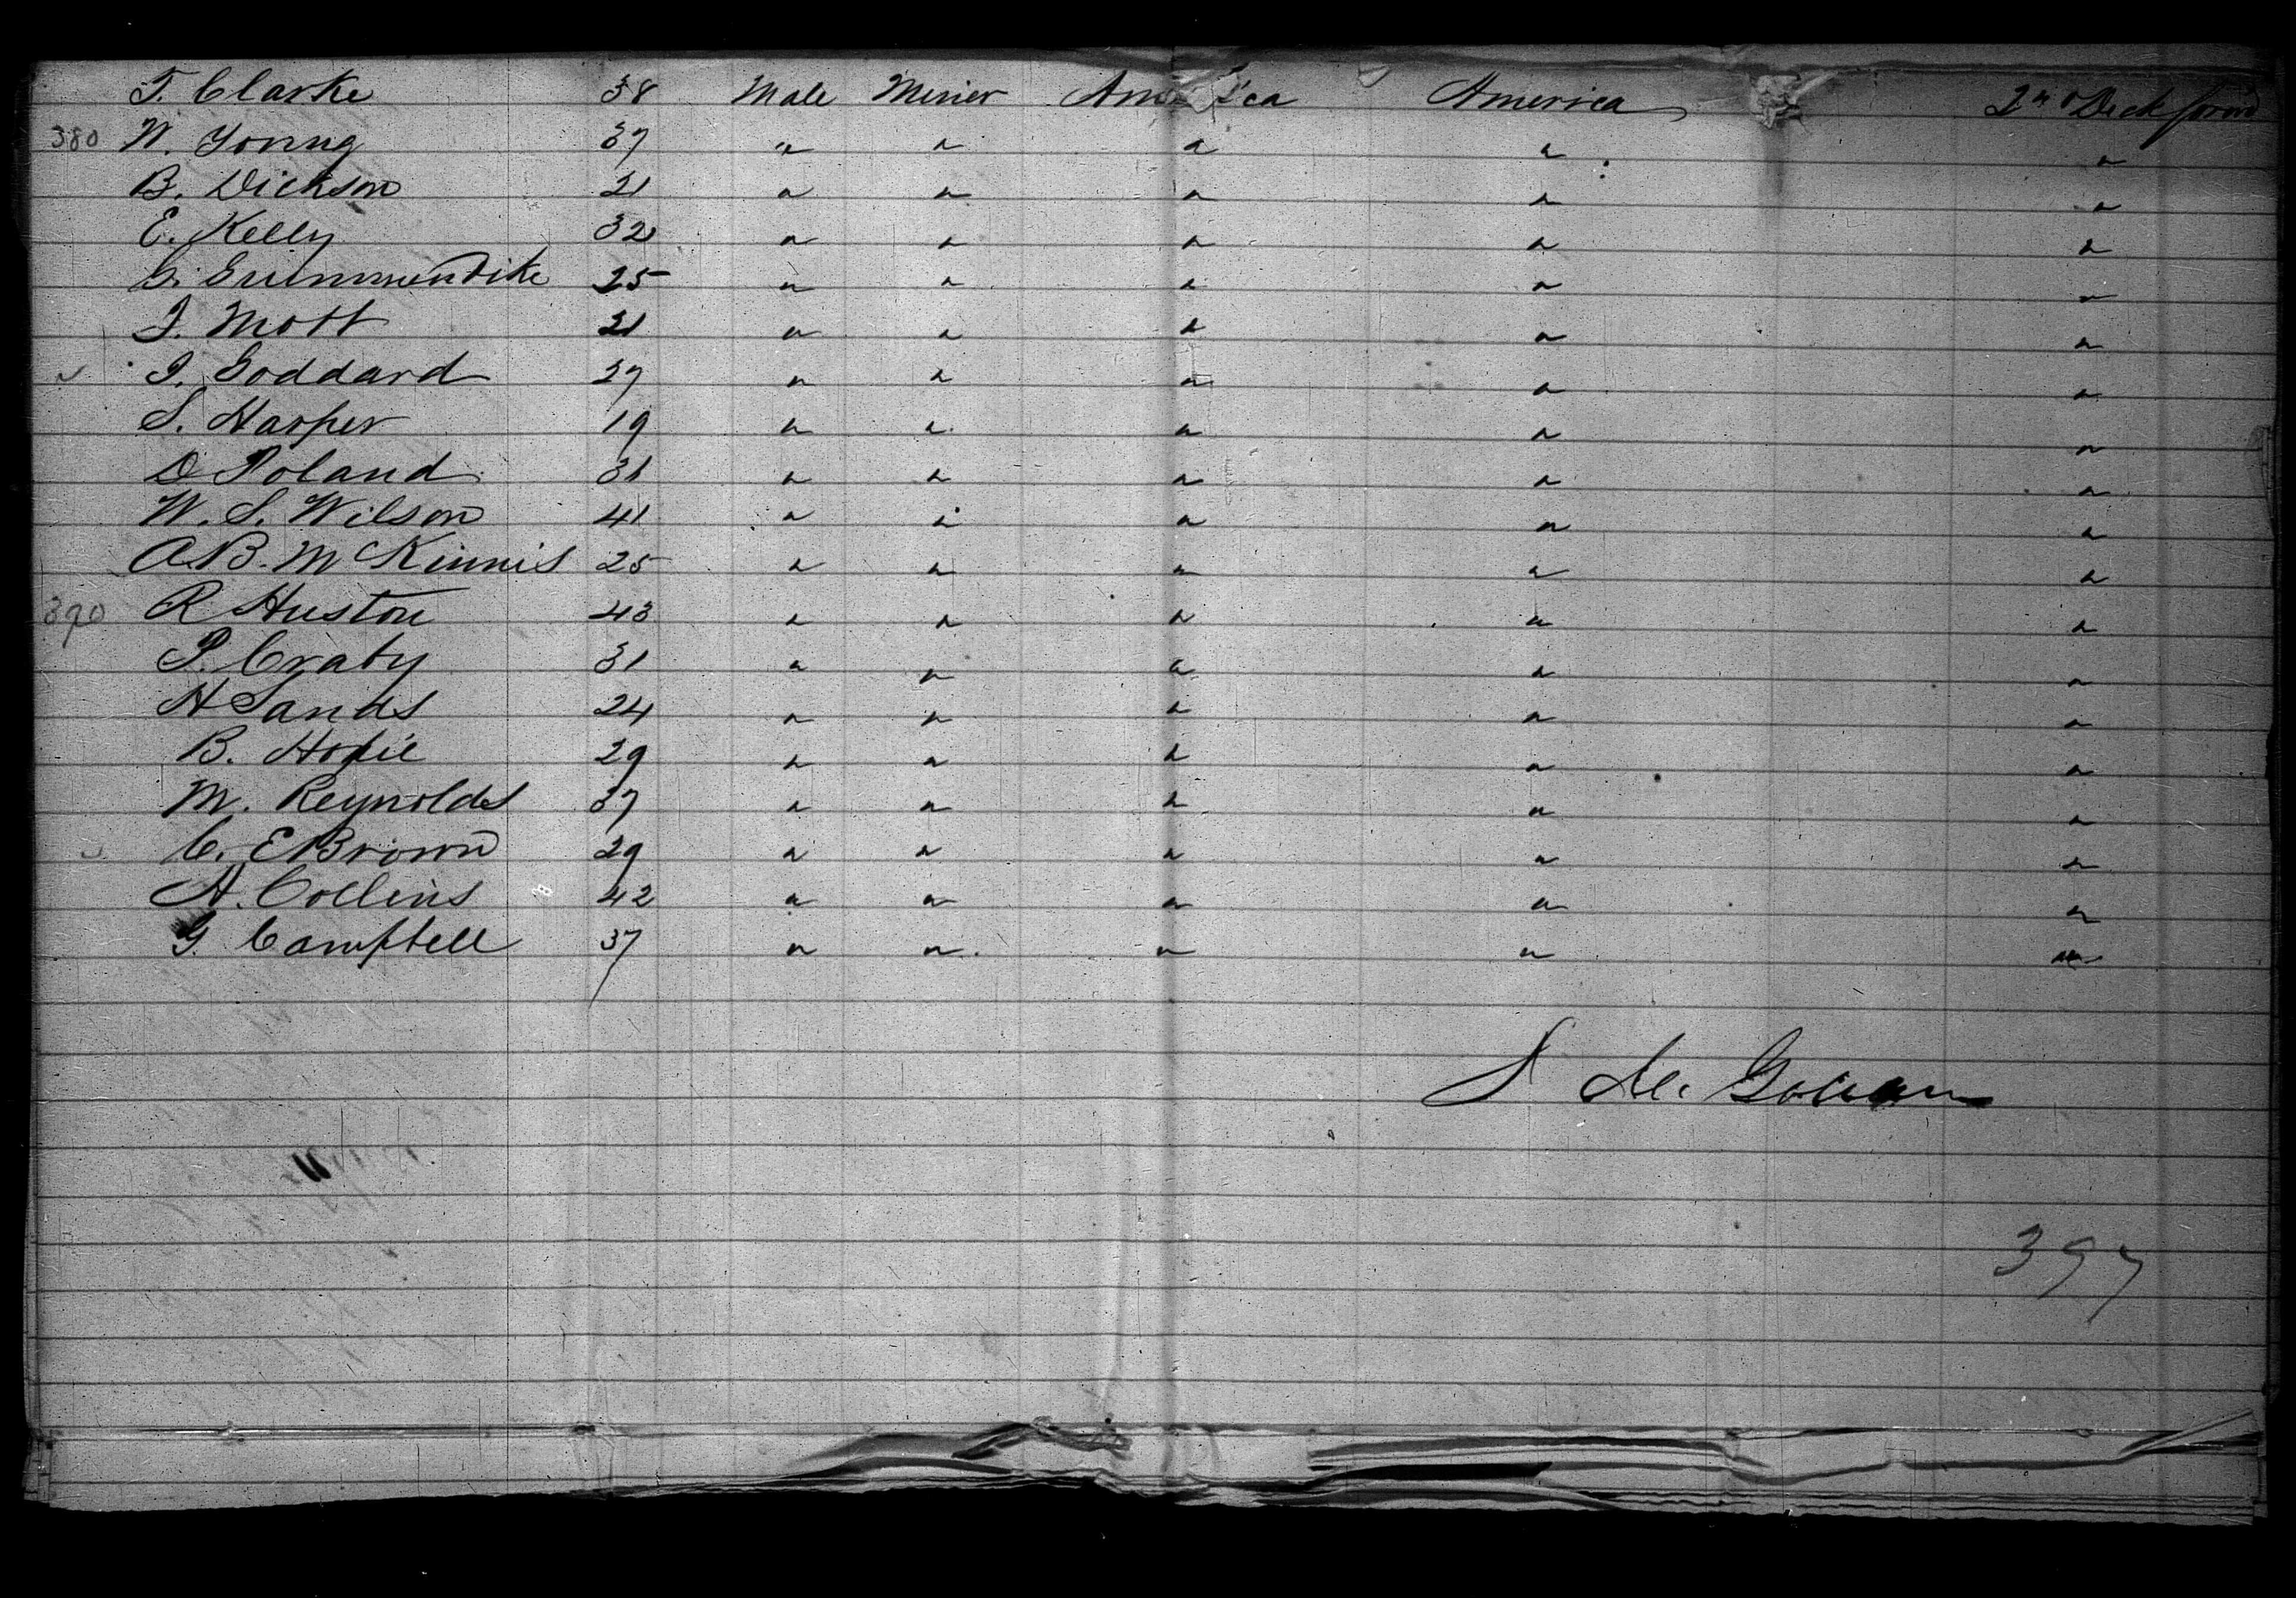 T. Clarke 38 Male Miner America America 2nd Deck forwd
380 W. Young 37 " " " " "
B. Dickson 21 " " " " "
E. Kelly 32 " " " " "
G. Grimmendike 25 " " " " "
J. Mott 21 " " " " "
J. Goddard 27 " " " " "
S. Harper 19 " " " " "
D Poland 31 " " " " "
W. S. Wilson 41 " " " " "
A B. McKinnis 25 " " " " "
390 R Huston 43 " " " " "
P. Craby 31 " " " " "
H Sands 24 " " " " "
B. Hopie 29 " " " " "
M. Reynolds 37 " " " " "
C. E Brown 29 " " " " "
A. Collins 42 " " " " "
G. Campbell 37 " " " " "
397